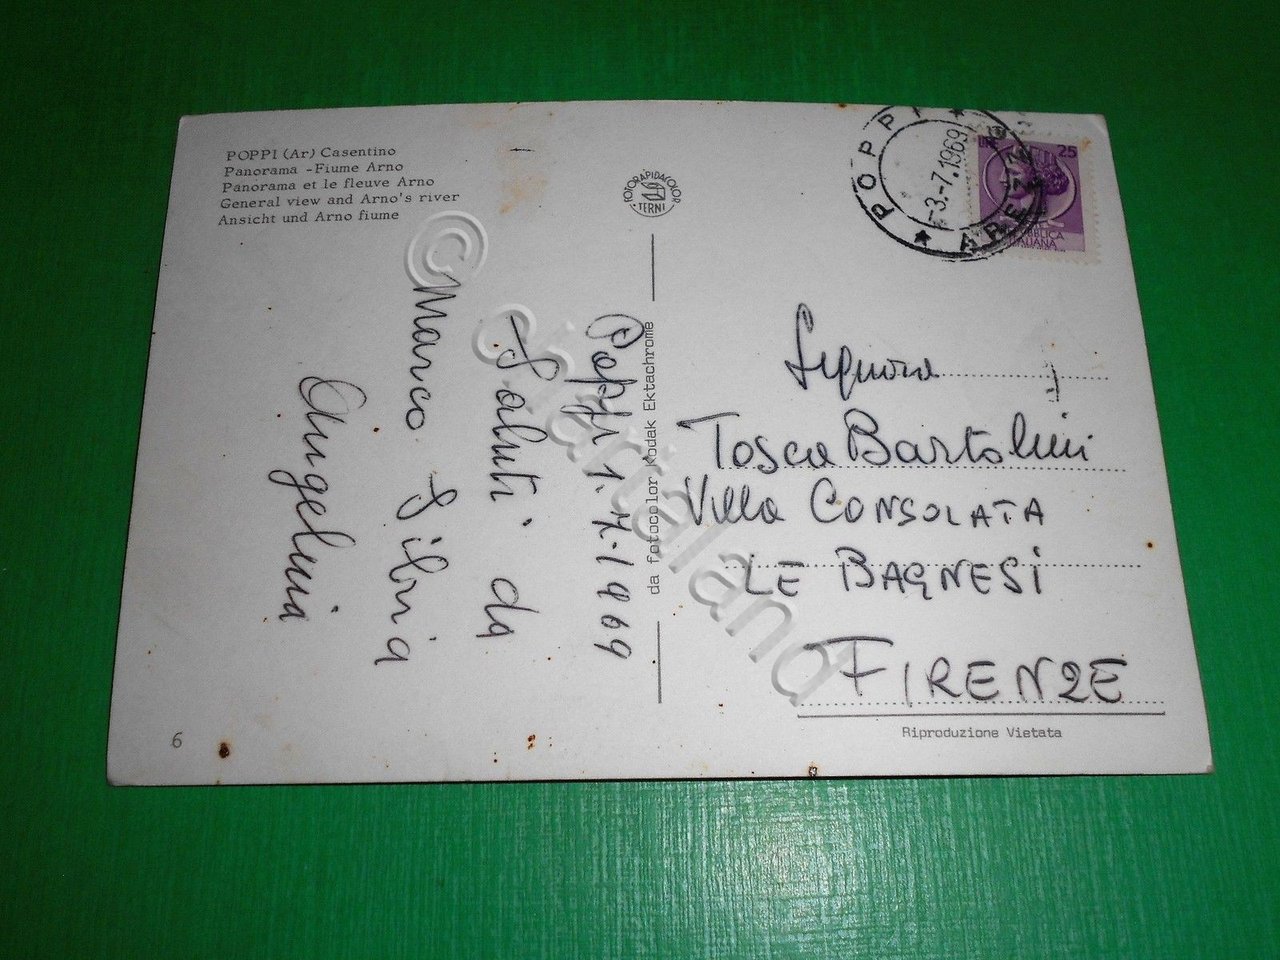 POPPI (Ar) Casentino
Panorama - Fiume Arno
Panorama et le fleuve Arno
General view and Arno's river
Ansicht und Arno fiume
FOTORAPIDACOLOR
TERNI
POPPI ★ AREZZO ★
-3.-7.1969
LIRE 25
REPUBBLICA
ITALIANA
Poppi 1.7.1969
Saluti da
Marco Silvia
Angelina
da fotocolor Kodak Ektachrome
Signora
Tosca Bartolini
Villa CONSOLATA
LE BAGNESI
FIRENZE
Riproduzione Vietata
6
© chartaland